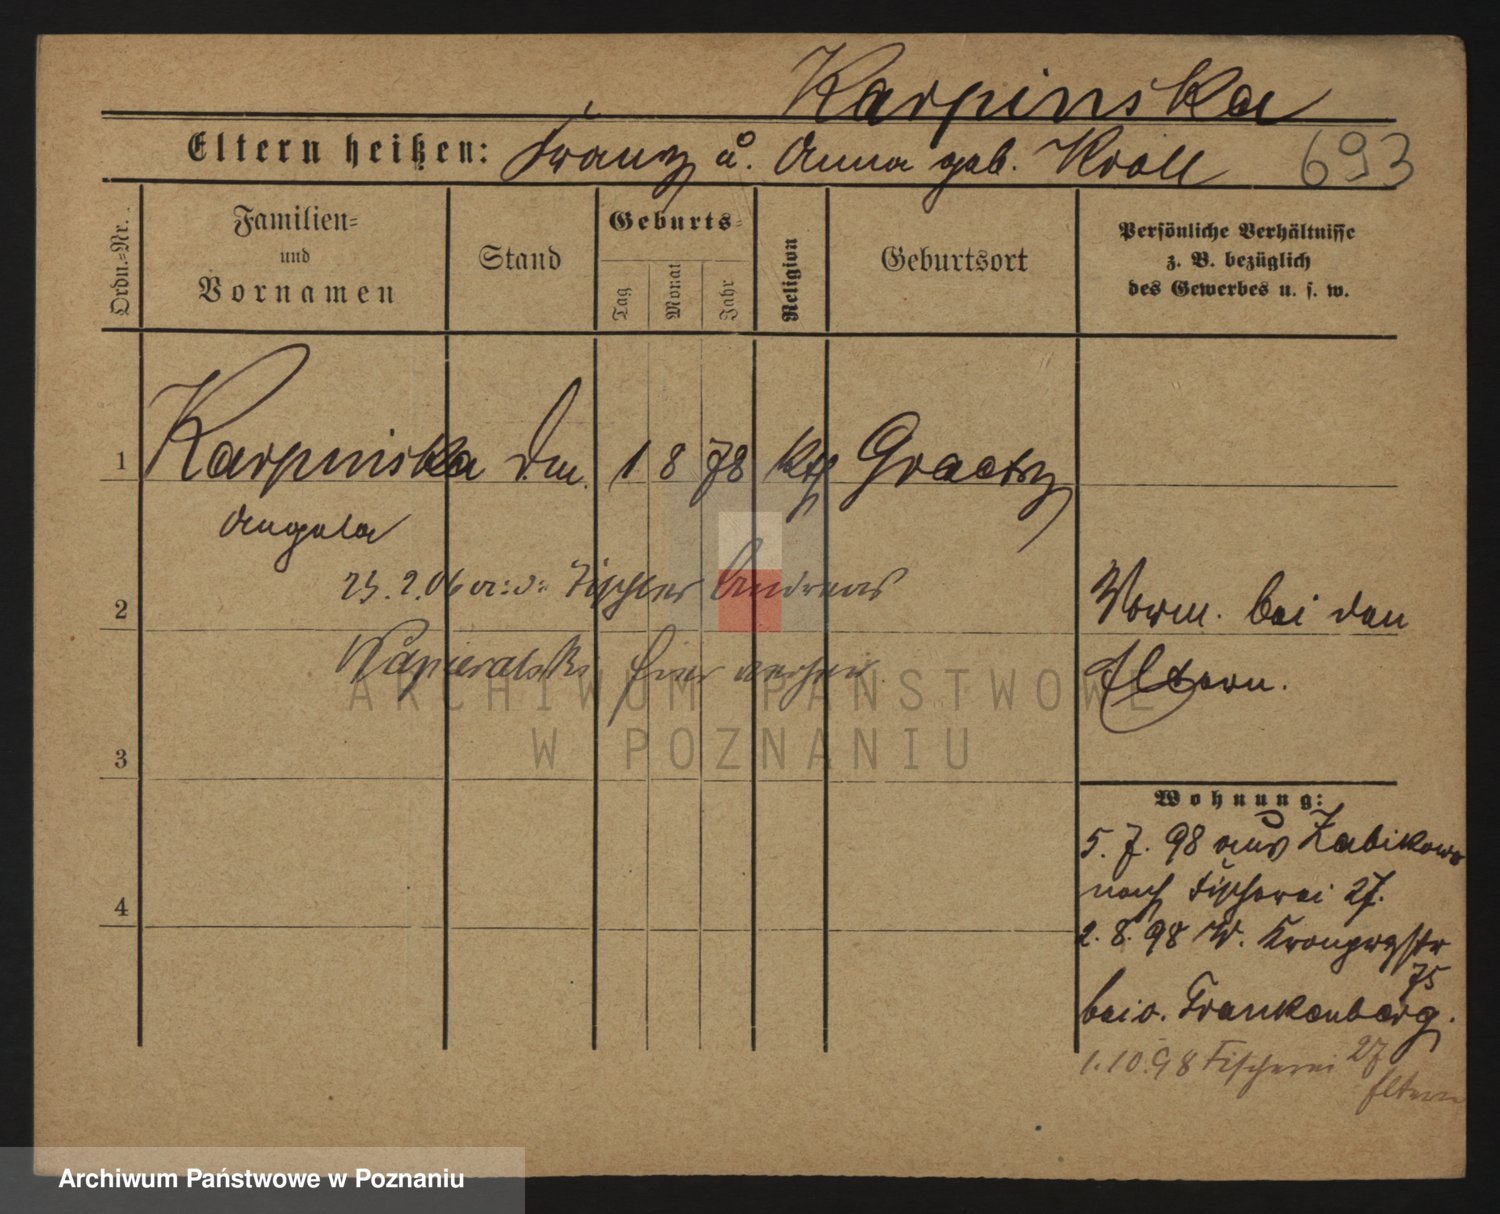 Karpinska
Eltern heißen: Franz u. Anna geb. Kroll 693
Ordn.=Nr.
Familien=
und
Vornamen
Stand
Geburts=
Tag
Monat
Jahr
Religion
Geburtsort
Persönliche Verhältnisse
z. B. bezüglich
des Gewerbes u. s. w.
1 Karpinska 1 8 78 kth
Angela
2 23.2.06 Tischler Andreas
Vorm. bei den
Kapieralski hier
Eltern.
ARCHIWUM PAŃSTWOWE
W POZNANIU
3
Wohnung:
5.7.98 aus Zabikowo
nach Fischerei 27.
4
2.8.98 W. Kronprzstr
75
bei v. Frankenberg.
1.10.98 Fischerei 27
Eltern
Archiwum Państwowe w Poznaniu